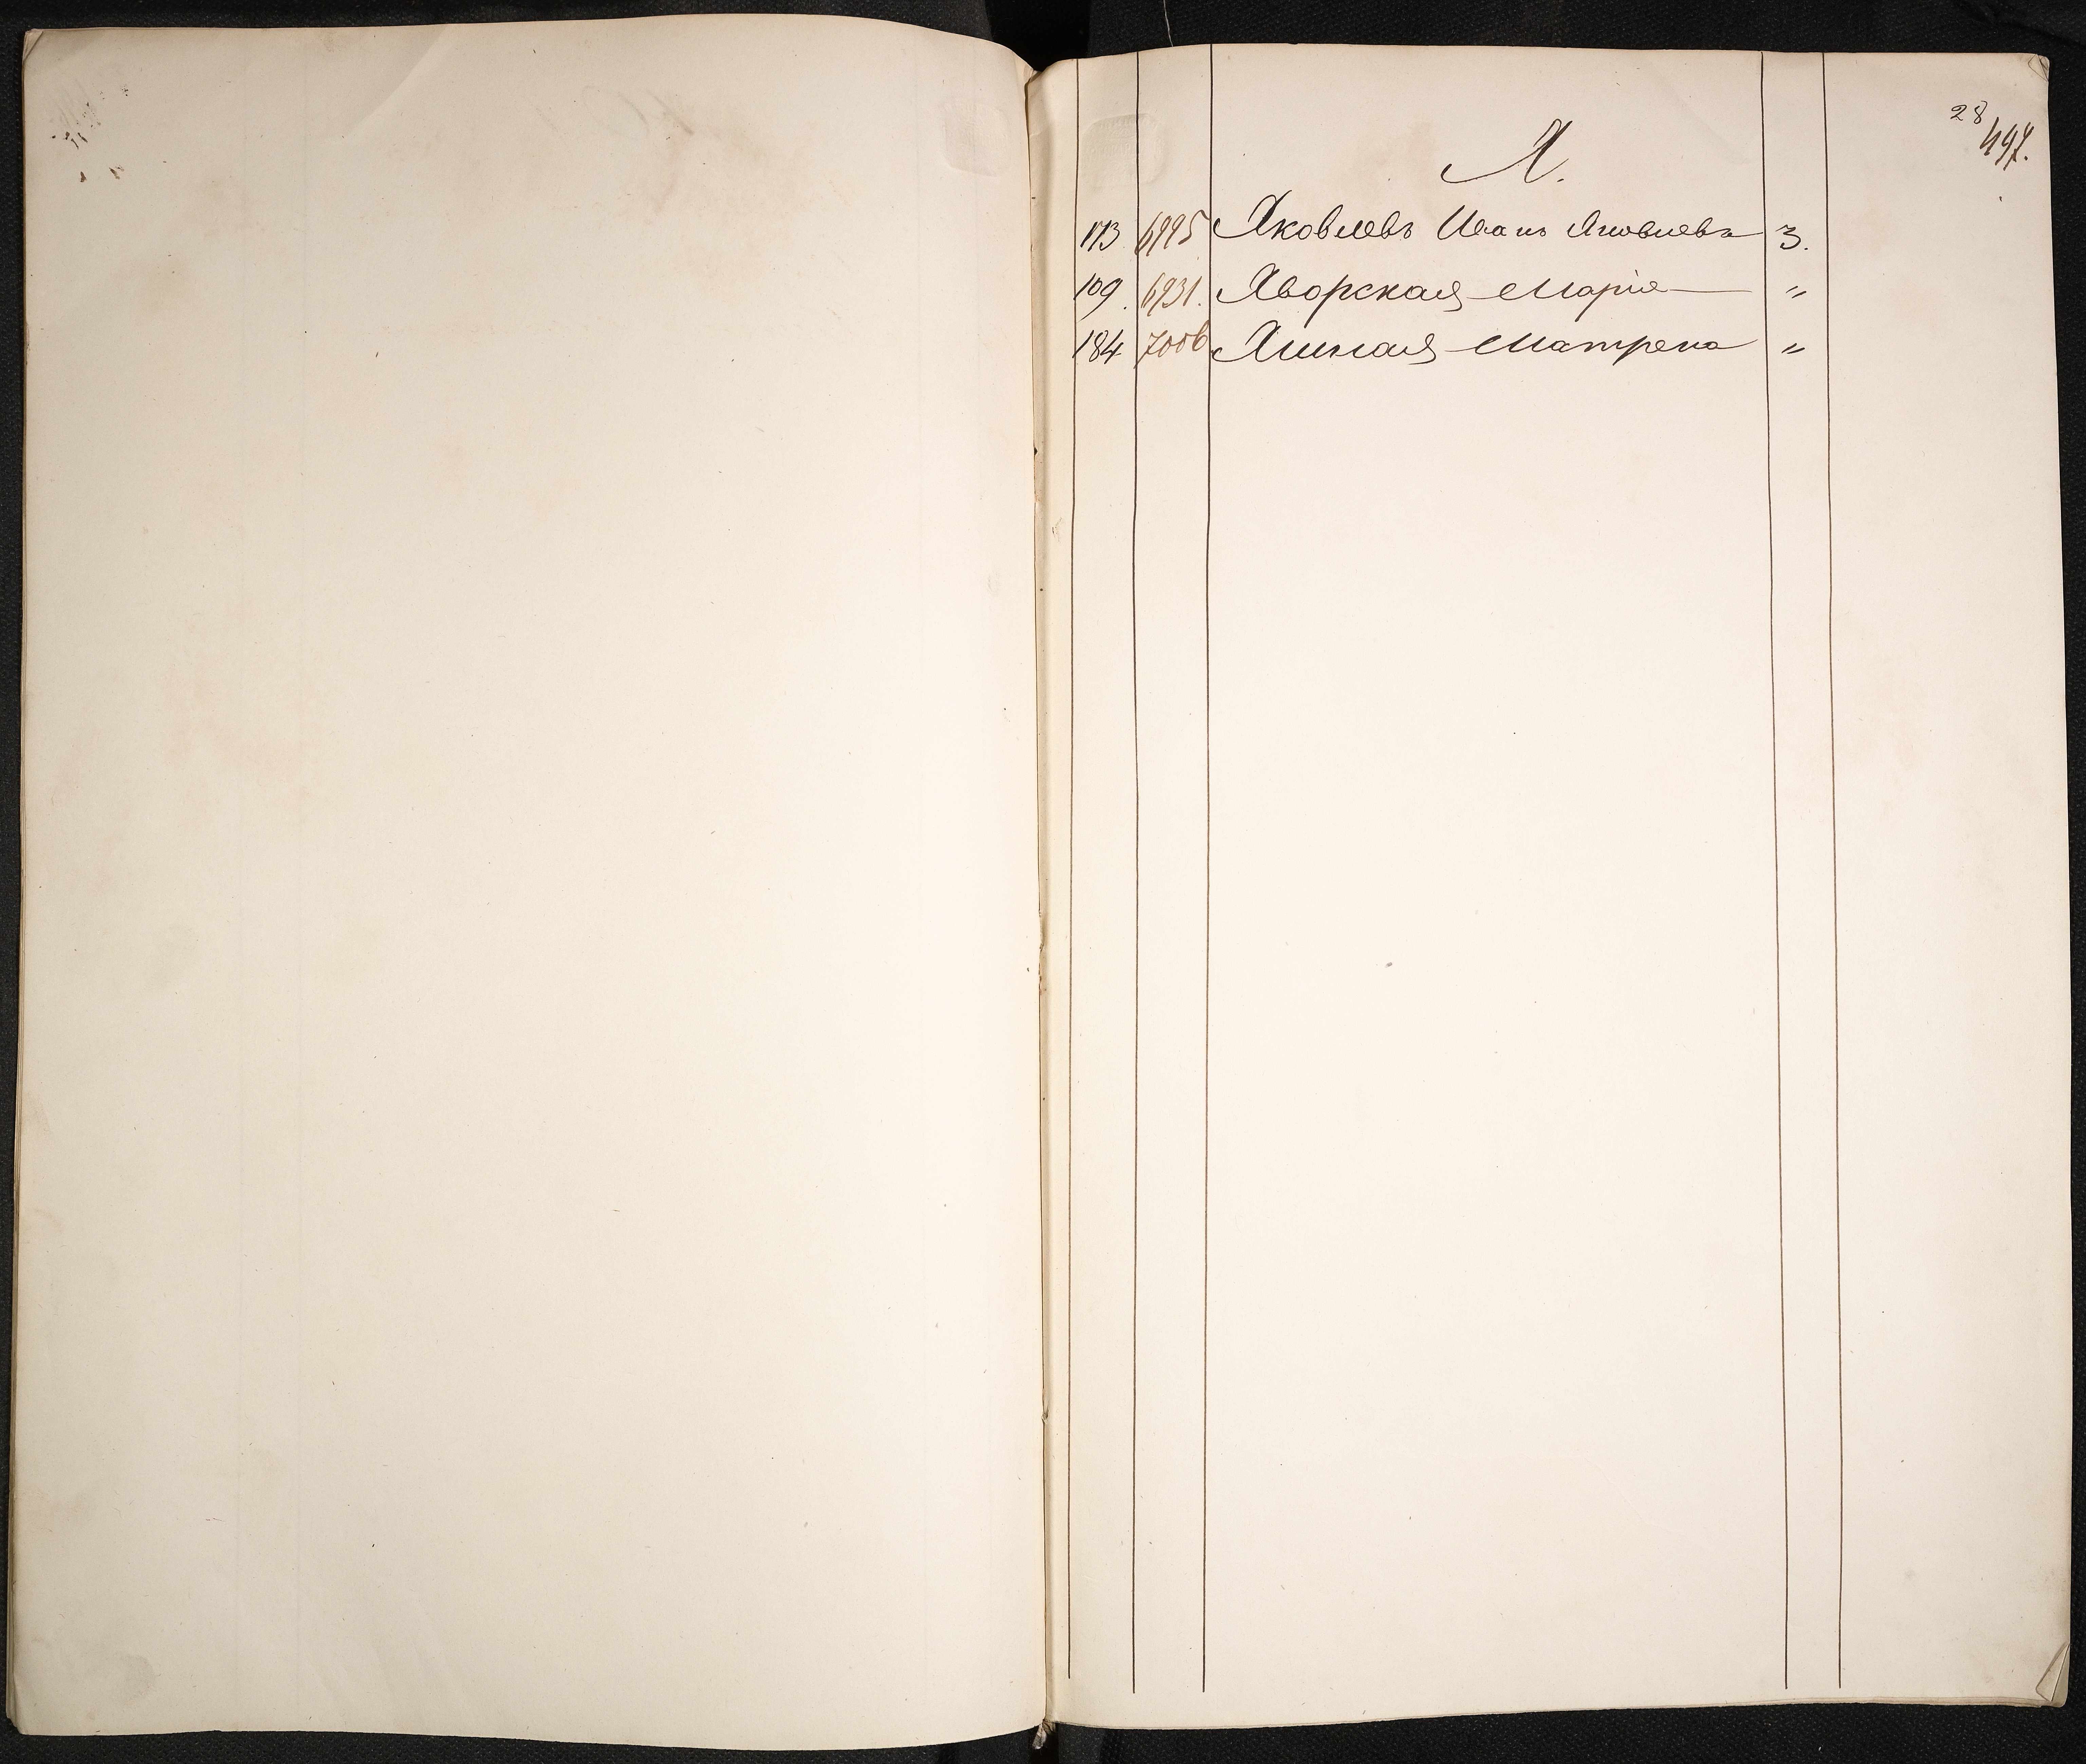 28
497.
Я.
173 6995 Яковлевъ Иванъ Яковлевъ 3.
109. 6931. Яворская Марія — „
184 7006 Матрена „